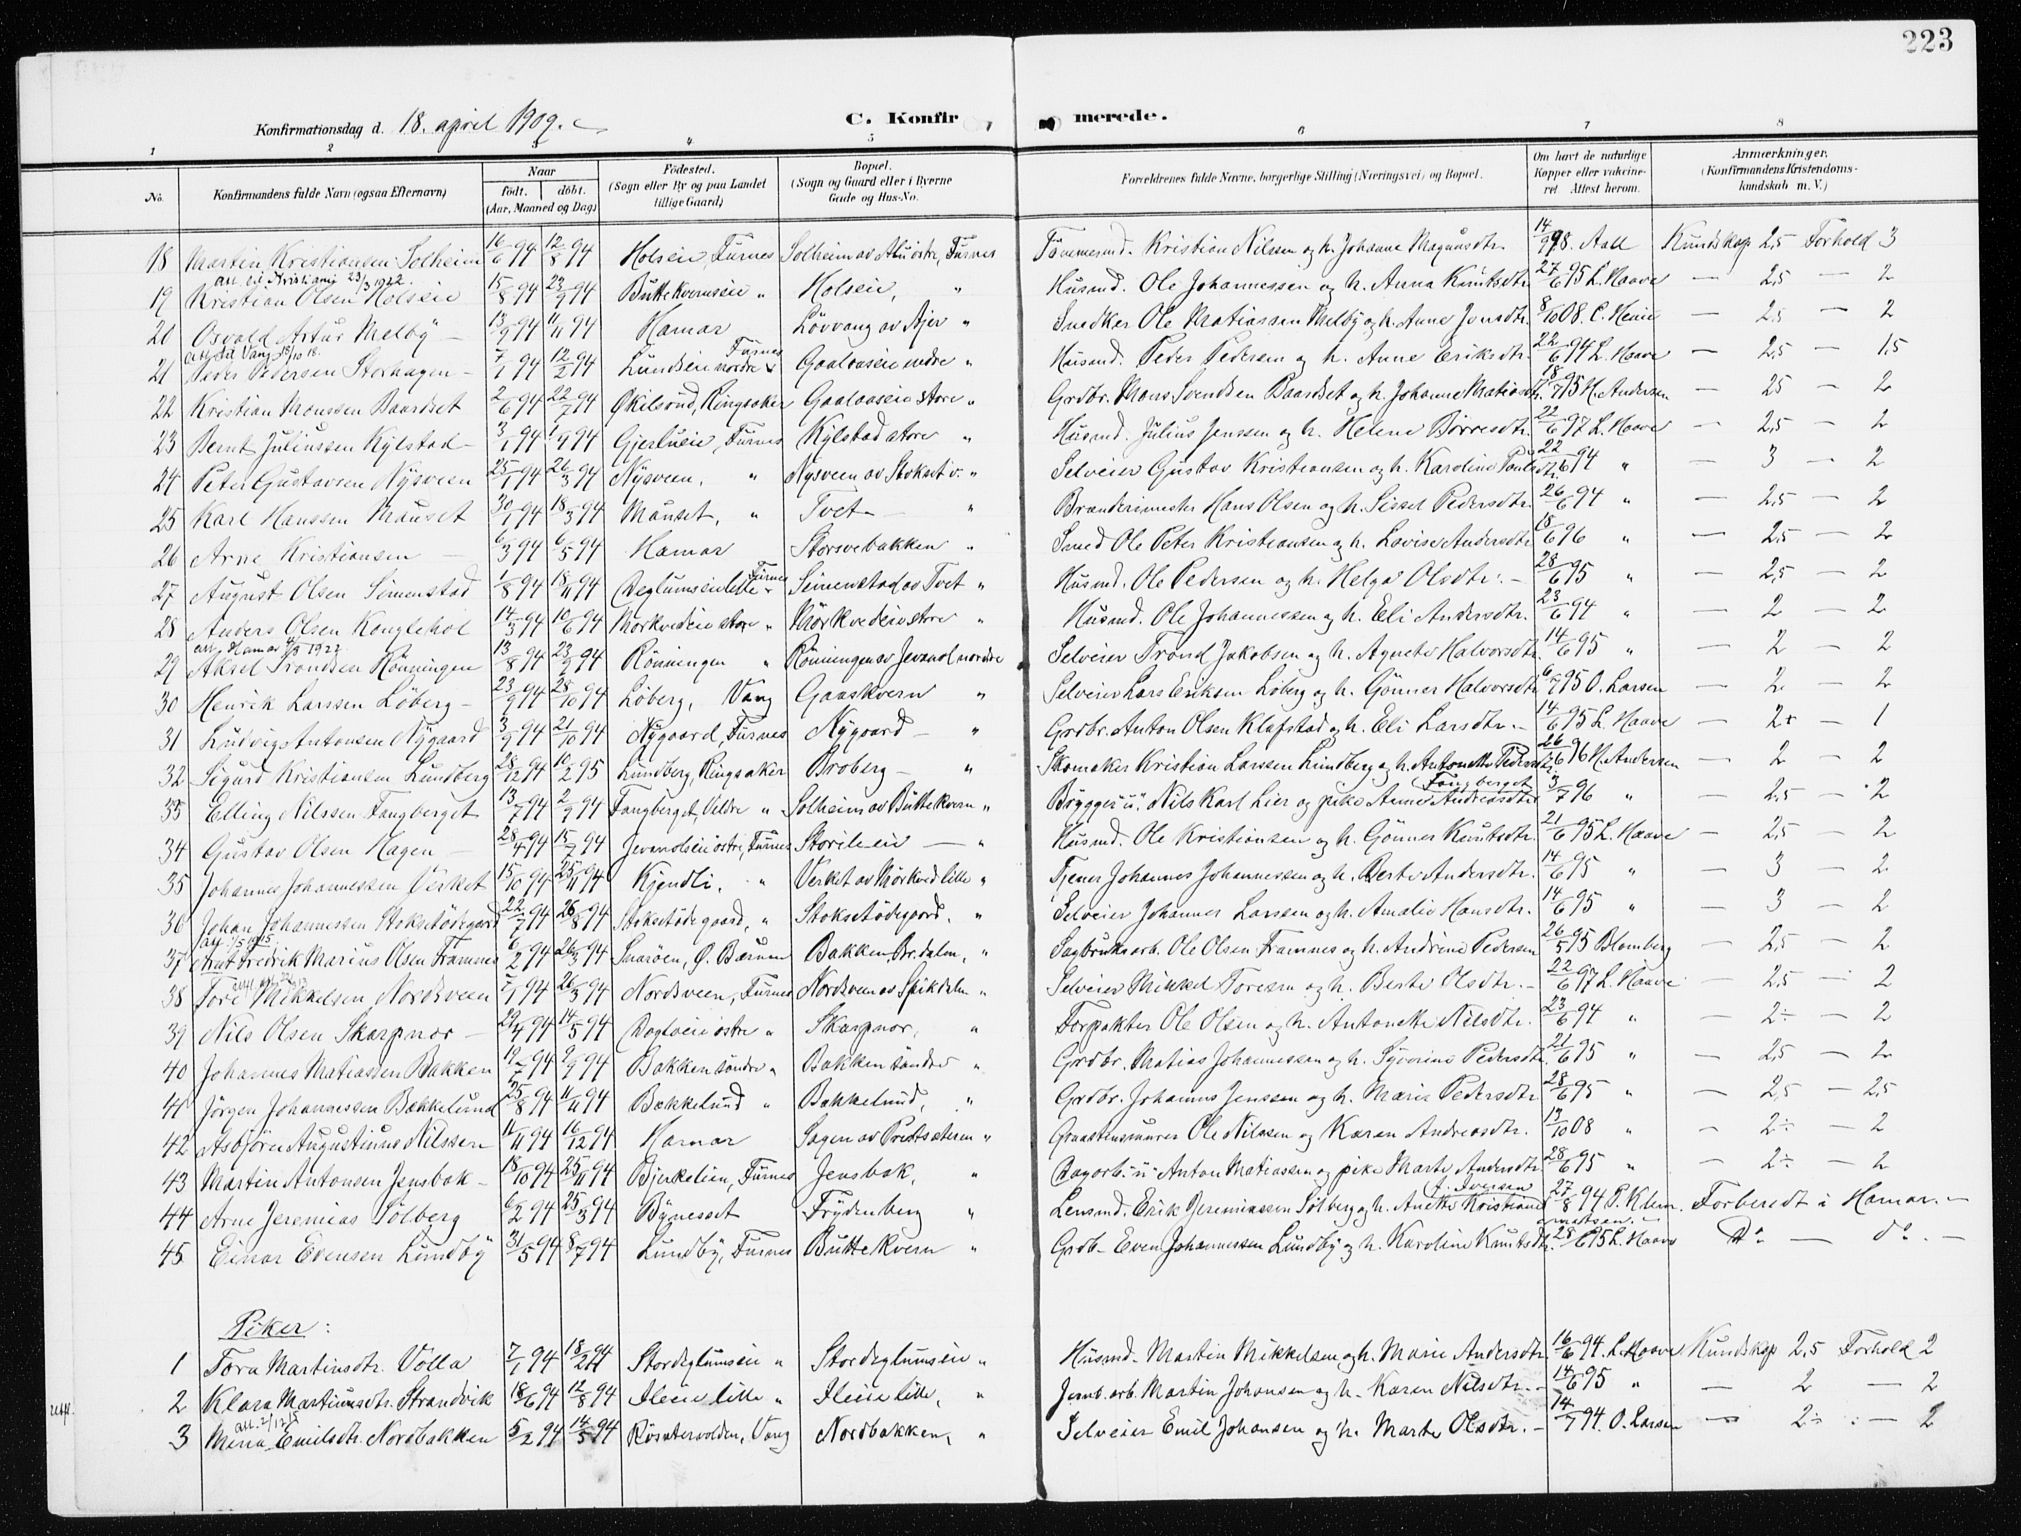 223
Konfirmationsdag d. 18. april 1909.
C. Konfirmerede.
1 2 3 4 5 6 7 8
No. Konfirmandens fulde Navn (ogsaa Efternavn) Naar født. døbt. (Aar, Maaned og Dag) Fødested. (Sogn eller By og paa Landet tillige Gaard) Bopæl. (Sogn og Gaard eller i Byerne Gade og Hus-No. Forældrenes fulde Navne, borgerlige Stilling (Næringsvei) og Bopæl. Om havt de naturlige Kopper eller vakcineret Attest herom. Anmærkninger. (Konfirmandens Kristendomskundskab m. V.)
18 Marten Kristiansen Solheim 16/6 94 12/8 94 Holseie, Furnes Solheim av Alu östre, Furnes Tömmermd. Kristian Nilssen og h. Johanne Magnusdtr. 14/9 98. Aall Kundskap 2,5 Forhold 3
att. til Kristiania 23/3 1922.
19 Kristian Olsen Holseie 15/8 94 23/9 94 Buttekvernseie " Holseie, " Husmd. Ole Johannessen og h. Anna Knutsdtr. 27/6 95 L. Haave — 2,5 — 2
20 Osvald Artur Melby — 13/9 94 11/11 94 Hamar Lövvang av Njer " Snedker Ole Matiassen Melby og h. Anne Jonsdtr. 8/10 08. C. Heiie — 2,5 — 2
att. til Vang 18/10 18.
21 Peder Pedersen Storhagen — 7/1 94 12/2 94 Lundseie nordre Furnes Gaalaaseie nedre " Husmd. Peder Pedersen og h. Anne Eriksdtr. 22/6 94 L. Haave — 2,5 — 1,5
22 Kristian Monssen Baardset 2/6 94 22/7 94 Økilsrud, Ringsaker Gaalaaseie store " Grdbr. Mons Svendsen Baardset og h. Johanne Matiasdtr. 18/7 95 H. Andersen — 2,5 — 2
23 Bernt Juliussen Kylstad — 3/1 94 1/4 94 Gjerlueie, Furnes Kylstad store " Husmd. Julius Jenssen og h. Helene Börresdtr. 22/6 97 L. Haave — 2,5 — 2
24 Peter Gustavsen Nysveen 25/1 94 26/3 94 Nysveen, " Nysveen av Stokset v. " Selveier Gustav Kristiansen og h. Karoline Paulsdtr. 22/6 94 " — 3 — 2
25 Karl Hanssen Mauset 30/1 94 18/3 94 Mauset, " Tvet — " Brænderimester Hans Olsen og h. Sissel Pedersdtr. 26/6 94 " — 2,5 — 2
26 Arne Kristiansen — 6/3 94 6/5 94 Hamar Storsvebakken " Smed Ole Peter Kristiansen og h. Lovise Andersdtr. 18/6 96 " — 2,5 — 2
27 August Olsen Simenstad 1/8 94 18/11 94 Deglumseie lille Furnes Simenstad av Tvet " Husmd. Ole Pedersen og h. Helga Olsdtr. — 28/6 95 " — 2,5 — 2
28 Anders Olsen Konglehol 14/3 94 10/6 94 Mörkvedeie store " Mörkvedeie store " Husmd. Ole Johannessen og h. Eli Andersdtr. 23/6 94 " — 2 — 2
att. Hamar 1922.
29 Aksel Trondsen Rönningen 13/8 94 23/9 94 Rönningen " Rönningen av Jevanol nordre Selveier Trond Jakobsen og h. Agnete Halvorsdtr. 14/6 95 " — 2 — 2
30 Henrik Larssen Löberg — 23/9 94 28/10 94 Löberg, Vang Gaaskvern " Selveier Lars Eriksen Löberg og h. Gönner Halvorsdtr. 6/7 95 O. Larsen — 2 — 2
31 Ludvig Antonsen Nygaard 3/9 94 21/10 94 Nygaard, Furnes Nygaard — " Grdbr. Anton Olsen Klafstad og h. Eli Larsdtr. — 14/6 95 L. Haave — 2+ — 1
32 Sigurd Kristiansen Lundberg 28/12 94 10/2 95 Lundberg, Ringsaker Broberg — " Skomaker Kristian Larssen Lundberg og h. Antonette Pedersdtr. 26/6 96 H. Andersen — 2 — 2
33 Elling Nilssen Fangberget 13/7 94 2/9 94 Fangberget, Veldre " Solheim av Buttekvern " Brygger "u". Nils Karl Lier og pike Anne Andreasdtr. Fangberget 3/7 96 " — 2,5 — 2
34 Gustav Olsen Hagen — 28/4 94 15/7 94 Jevanolseie östre, Furnes Storileie — " Husmd. Ole Kristiansen og h. Gönner Knutsdtr. 21/6 95 L. Haave — 2,5 — 2
35 Johannes Johannessen Verket 15/10 94 25/11 94 Kjendli, " Verket av Mörkved lille " Tjener Johannes Johannessen og h. Berte Andersdtr. 14/6 95 " — 3 — 2
36 Johan Johannessen Stoksetödegaard 22/7 94 26/8 94 Stoksetödegaard, " Stoksetödegaard, " Selveier Johannes Larssen og h. Amalie Hansdtr. 14/6 95 " — 3 — 2
att. 1/5 1915.
37 Knut Fredrik Marius Olsen Framnes 6/2 94 26/3 94 Snaröen, Ø. Bærum Bakken, Brdalen, " Sagbruksarb. Ole Olsen Framnes og h. Andrine Pedersen 26/5 95 Blomberg — 2,5 — 2
38 Tore Mikkelsen Nordsveen 7/1 94 26/3 94 Nordsveen, Furnes Nordsveen av Spikdalen " Selveier Mikkel Toresen og h. Berte Olsdtr. — 22/6 97 L. Haave — 2,5 — 2
39 Nils Olsen Skarpnor — 29/4 94 14/5 94 Dagloeie östre " Skarpnor, " Forpakter Ole Olsen og h. Antonette Nilsdtr. 23/6 94 " — 2÷ — 2
40 Johannes Matiassen Bakken 19/7 94 2/9 94 Bakken söndre " Bakken söndre " Grdbr. Matias Johannessen og h. Syverine Pedersdtr. 21/6 95 " — 2,5 — 2
41 Jörgen Johannessen Bækkelund 25/8 94 11/11 94 Bækkelund " Bækkelund, " Grdbr. Johannes Jenssen og h. Marie Pedersdtr. 28/6 95 " — 2,5 — 2,5
42 Asbjörn Augustinus Nilssen 11/11 94 16/12 94 Hamar Sagen av Prestsæteren " Graastensmurer Ole Nilssen og Karen Andreasdtr. 13/10 08 " — 2÷ — 2
43 Martin Antonsen Jensbak — 18/10 94 25/11 94 Bjerkelien, Furnes Jensbak, " Dagarb. "u" Anton Matiassen og pike Marte Andersdtr. 28/6 95 " — 2÷ — 2
44 Arne Jeremias Sölberg 6/2 94 25/3 94 Bynesset Frydenberg " Lensmd. Erik Jeremiassen Sölberg og h. Anette Kristiane f. Iversen 27/8 94 P. Klem. Forberedt i Hamar. —
45 Einar Evensen Lundby 31/5 94 8/7 94 Lundby, Furnes Buttekvern " Grdb. Even Johannessen Lundby og h. Karoline Knutsdtr. 28/6 95 L. Haave Do — do —
Piker:
1 Tora Martinsdtr. Volla 7/1 94 18/2 94 Stordeglumseie " Stordeglumseie " Husmd. Martin Mikkelsen og h. Marie Andersdtr. 16/6 94. L. Haave Kundskap 2,5 Forhold 2
2 Klara Martinusdtr. Strandvik 18/6 94 12/8 94 Ileeie lille " Ileeie lille, " Jernb.arb. Martin Johansen og h. Karen Nilsdtr. — 14/6 95 " — 2 — 2
att. 2/12 15
3 Mina Emilsdtr. Nordbakken 5/2 94 14/5 94 Rösætervolden, Vang Nordbakken, " Selveier Emil Johansen og h. Marte Olsdtr. — 14/7 94. O. Larsen — 2÷ — 2